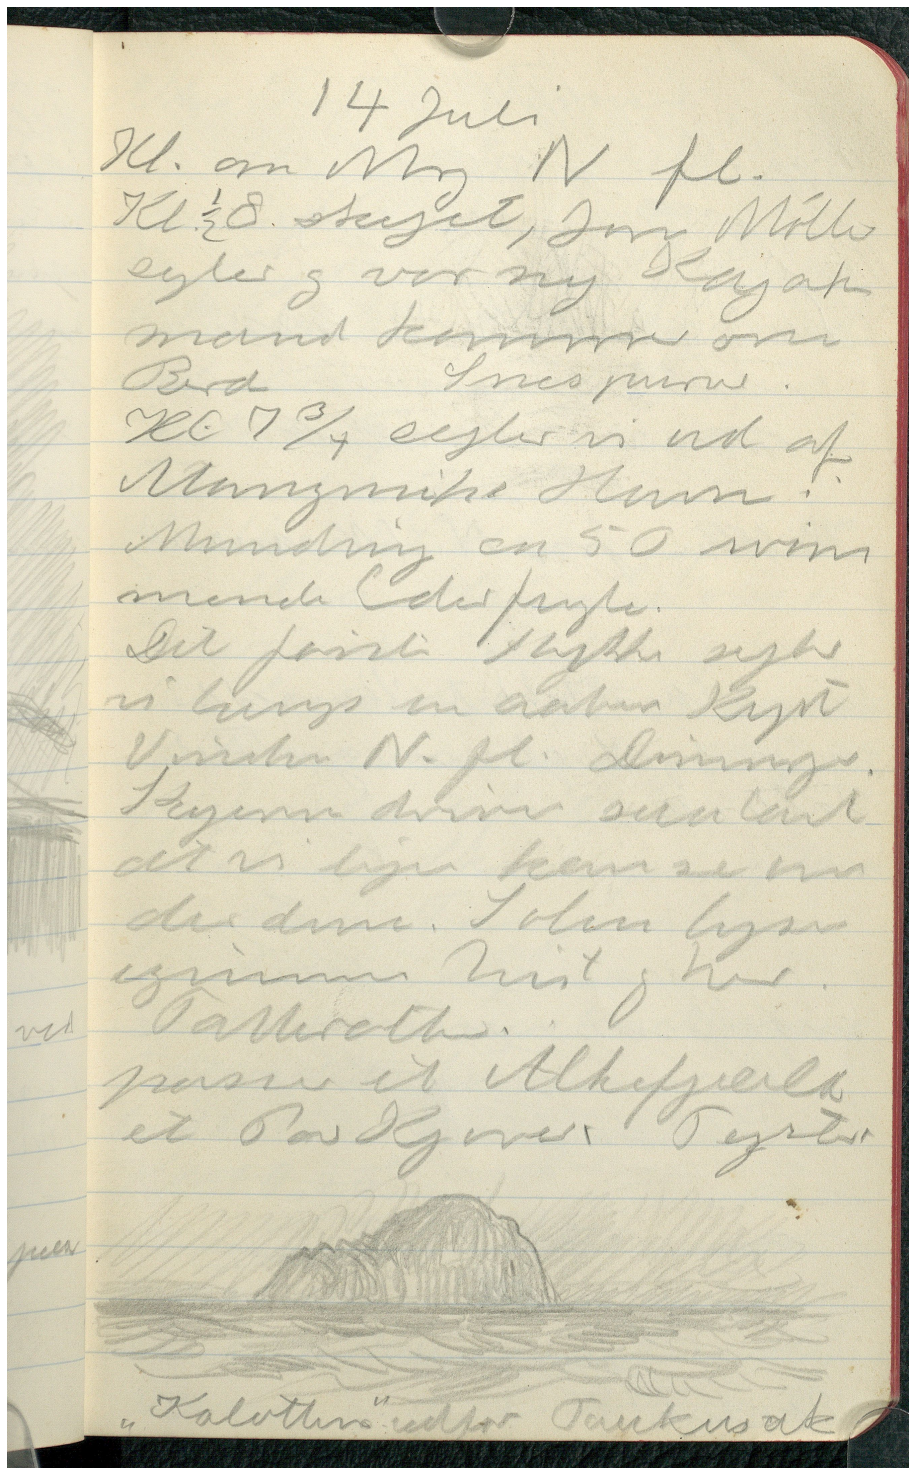 14 Juli
Kl. om Mrg N fl.
Kl ½8. skyet, Jens Möller
sejler g vor ny Kajak
mand kommer om
Bord Snespurve.
Kl 7 3/4 sejler vi ud af
Havn i
Munding ca 50 svøm
mende Ederfugle.
Det første Stykke sejler
vi langs en aaben Kyst
Vinden N. fl. Dininger.
Skyerne driver saa lavt
at vi lige kan se un
der dem. Solen lyser
igennem hist g her.
Patteratten.
passer et Alkefjæld
et Par Kjover. Tejster
„Kalotten" udfor
ved